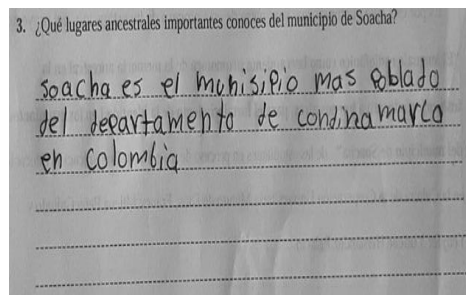 3. ¿Qué lugares ancestrales importantes conoces del municipio de Soacha?
soacha es el munisipio mas poblado
del departamento de condinamarca
en colombia